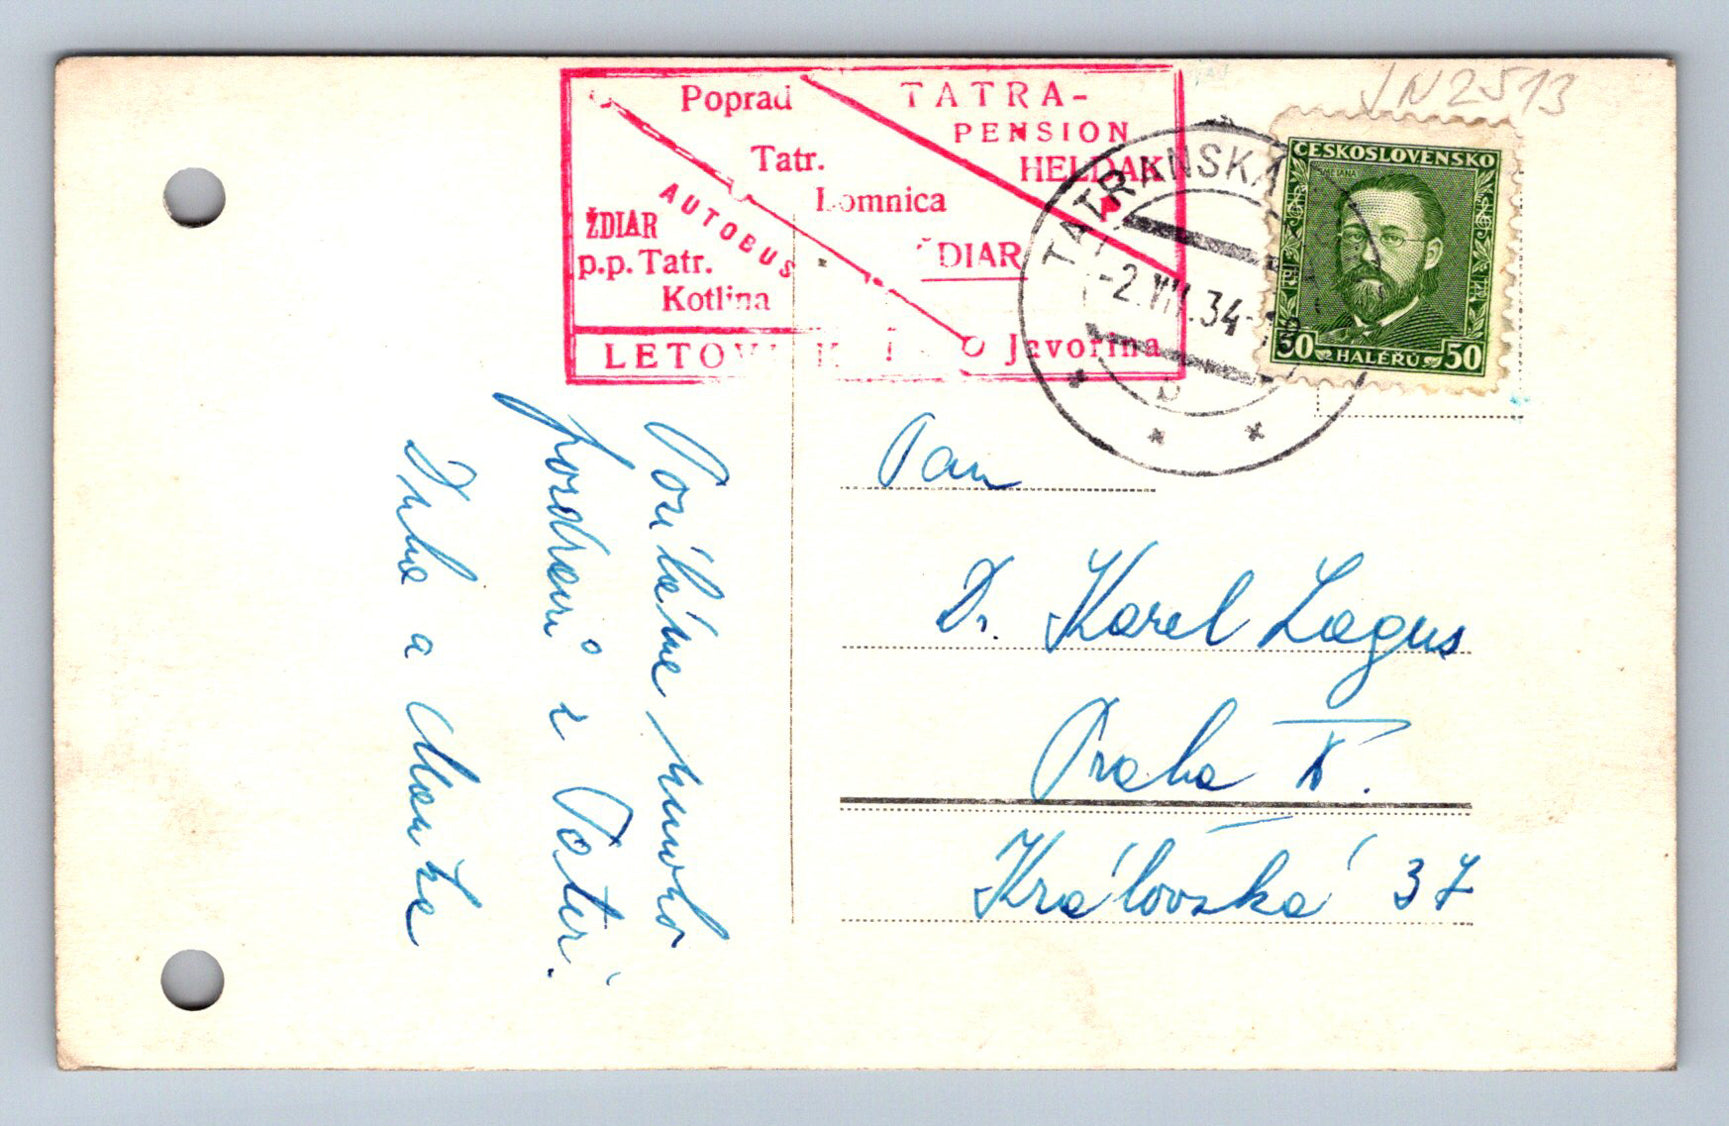 VN2513
Poprad
TATRA-
PENSION
HELDAK
Tatr.
Lomnica
AUTOBUS
ŽDIAR
p.p. Tatr.
Kotlina
ŽDIAR
Javorina
TATRANSKÁ
-2.VII.34-
ČESKOSLOVENSKO
SMETANA
50 HALÉŘŮ 50
Posíláme mnoho
pozdravů z Tater.
a Mařka
Pan
Dr. Karel Lagus
Praha X.
Královská 37